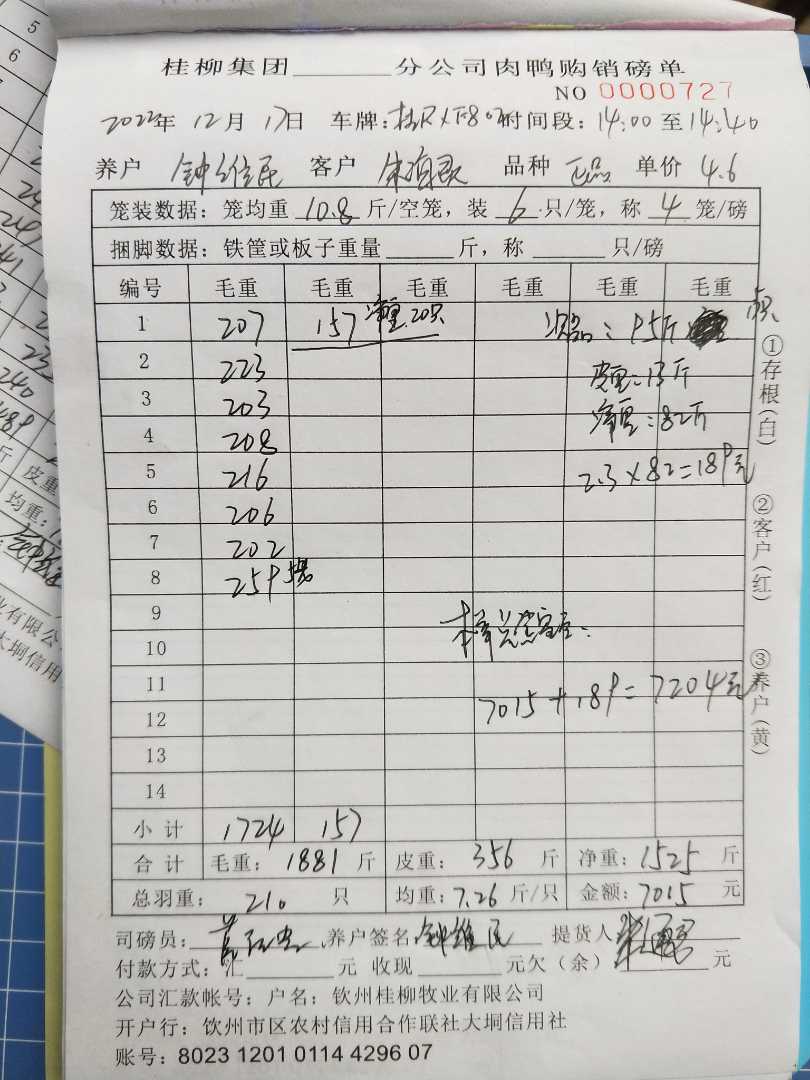 桂柳集团______分公司肉鸭购销磅单
NO 0000727
2022年 12月 17日 车牌: 时间段: 14:00 至 14:40
养户 钟维民 客户 品种 正品 单价 4.6
笼装数据: 笼均重 10.8 斤/空笼, 装 6 只/笼, 称 4 笼/磅
捆脚数据: 铁筐或板子重量______斤, 称______只/磅
编号 毛重 毛重 毛重 毛重 毛重 毛重
1 207 157 净重 20只 次品: 95斤
2 223 皮重: 13斤
3 203 净重: 82斤
4 208
5 216 2.3×82=189元
6 206
7 202
8 259 5笼
9
10
11 7015+189=7204元
12
13
14
小计 1724 157
合计 毛重: 1881 斤 皮重: 356 斤 净重: 1525 斤
总羽重: 210 只 均重: 7.26 斤/只 金额: 7015 元
司磅员: 养户签名 钟维民 提货人
付款方式: 汇______元 收现______元欠(余)______元
公司汇款帐号: 户名: 钦州桂柳牧业有限公司
开户行: 钦州市区农村信用合作联社大垌信用社
账号: 8023 1201 0114 4296 07
①存根(白)
②客户(红)
③养户(黄)